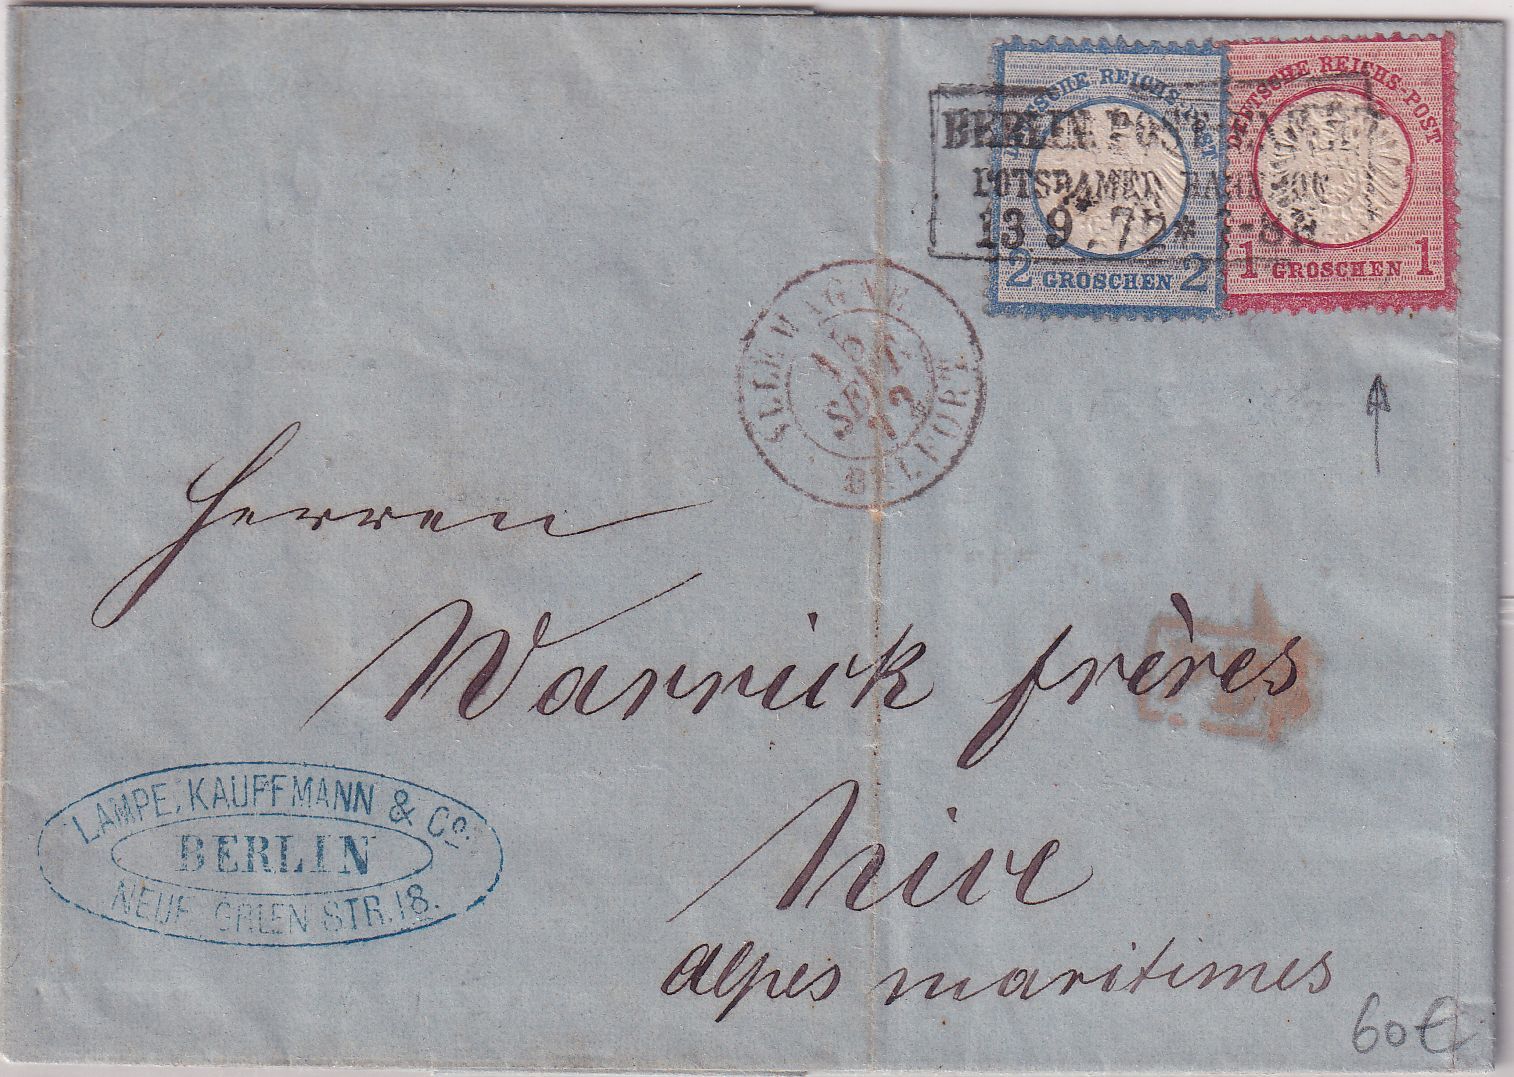 DEUTSCHE REICHS-POST
DEUTSCHE REICHS-POST
BERLIN POST
POTSDAMER BAHNHOF
13 9 72 *
2 GROSCHEN 2
1 GROSCHEN 1
ALLEMAGNE
15
SEPT
72
BELFORT
Herren
Warrick frères
Nice
alpes maritimes
LAMPE, KAUFFMANN & Co.
BERLIN
STR. 18.
60€